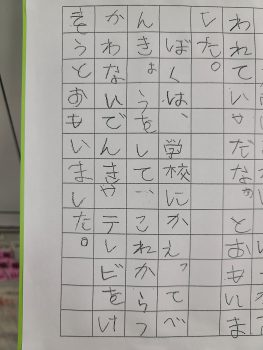 われていやだなぁとおもいま
した。
ぼくは、学校にかえってべ
んきょうをして、これからつ
かわないでんきやテレビをけ
そうとおもいました。